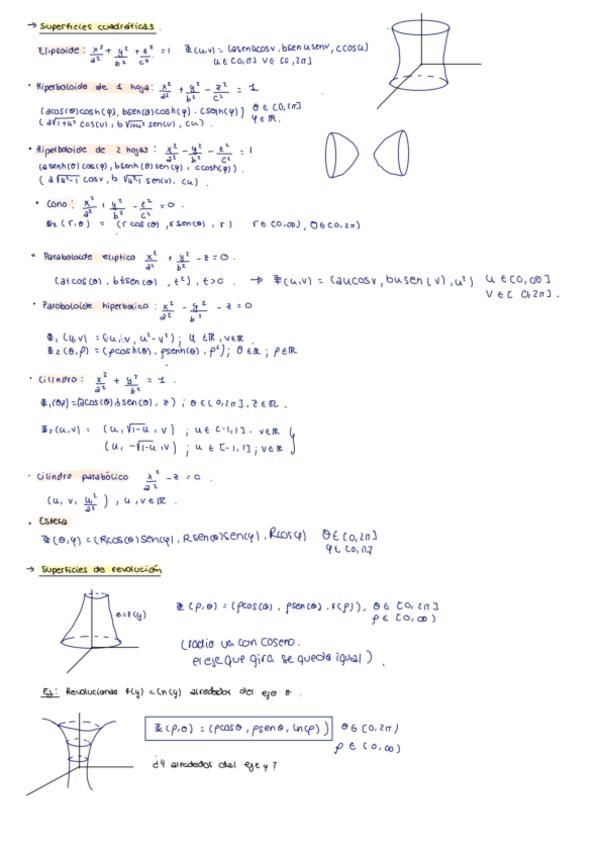 → Superficies cuadráticas.
Elipsoide: x²/a² + y²/b² + z²/c² = 1   Φ(u,v) = (a senu cosv, b senu senv, c cosu)
u ∈ [0,π] v ∈ [0,2π]
· Hiperboloide de 1 hoja: x²/a² + y²/b² - z²/c² = 1
(a cos(θ) cosh(φ), b sen(θ) cosh(φ), c senh(φ))   θ ∈ [0,2π]
φ ∈ ℝ.
(a√1+u² cos(v), b√1+u² sen(v), cu).
· Hiperboloide de 2 hojas: x²/a² - y²/b² - z²/c² = 1
(a senh(θ) cos(φ), b senh(θ) sen(φ), c cosh(φ)).
(a√u²-1 cosv, b √u²-1 sen(v), cu).
· Cono: x²/a² + y²/b² - z²/c² = 0.
(r,θ) = (r cos(θ), r sen(θ), r)   r ∈ [0,∞), θ ∈ [0,2π]
· Paraboloide elíptico x²/a² + y²/b² - z = 0.
(at cos(θ), bt sen(θ), t²), t>0. → Φ(u,v) = (au cosv, bu sen(v), u²)   u ∈ [0,∞]
v ∈ [0,2π].
· Paraboloide hiperbólico: x²/a² - y²/b² - z = 0
Φ₁(u,v) = (u, v, u²-v²); u ∈ ℝ, v ∈ ℝ.
Φ₂(θ,ρ) = (ρ cosh(θ), ρ senh(θ), ρ²); θ ∈ ℝ; ρ ∈ ℝ
· Cilindro: x²/a² + y²/b² = 1.
Φ₁(θ,z) = (a cos(θ), b sen(θ), z); θ ∈ [0,2π], z ∈ ℝ.
Φ₂(u,v) = (u, √1-u, v); u ∈ [-1,1], v ∈ ℝ
(u, -√1-u, v); u ∈ [-1,1]; v ∈ ℝ
· Cilindro parabólico x²/a² - z = 0.
(u, v, u²/a²), u, v ∈ ℝ.
· Esfera
Φ(θ,φ) = (R cos(θ) sen(φ), R sen(θ) sen(φ), R cos(φ)   θ ∈ [0,2π]
φ ∈ [0,π]
→ Superficies de revolución
z=f(y)
Φ(ρ,θ) = (ρ cos(θ), ρ sen(θ), f(ρ)), θ ∈ [0,2π]
ρ ∈ [0,∞)
(radio va con coseno.
el eje que gira se queda igual).
Ej: Revolucionas f(y) = ln(y) alrededor del eje z.
Φ(ρ,θ) = (ρ cosθ, ρ senθ, ln(ρ))   θ ∈ [0,2π)
ρ ∈ (0,∞)
¿Y alrededor del eje y?